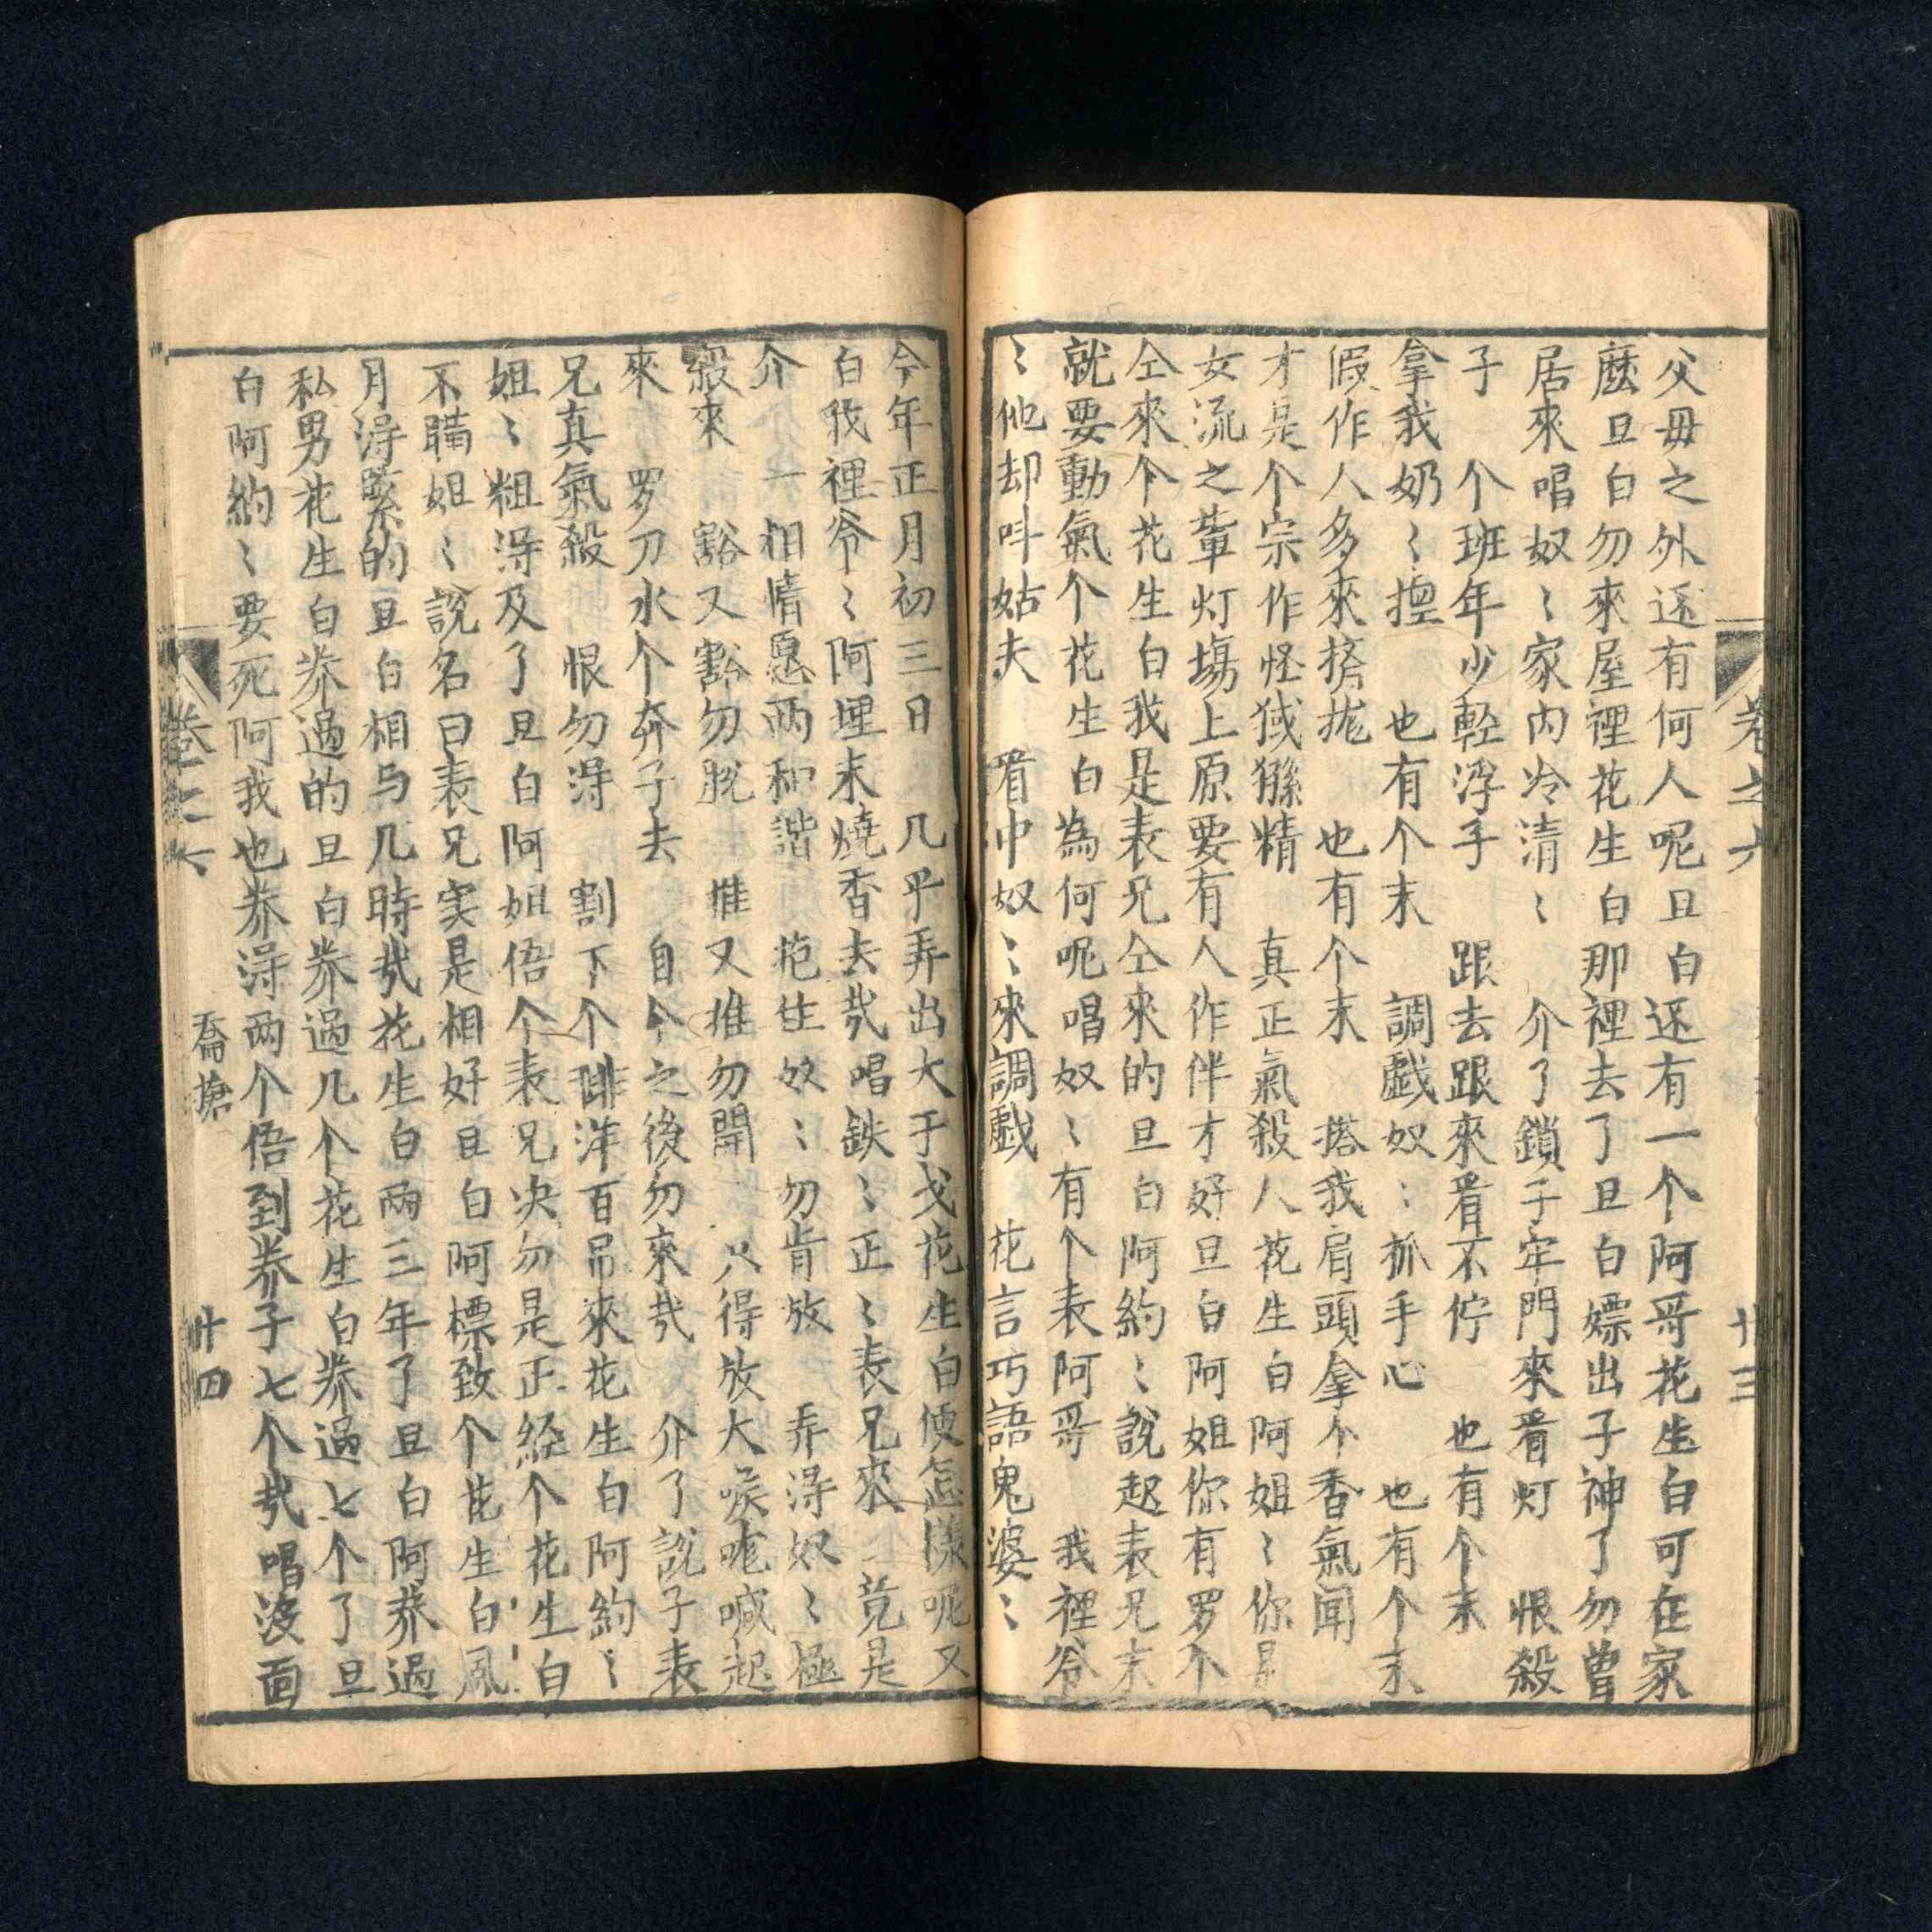 卷之六
廿三
父母之外还有何人呢旦白还有一个阿哥花生白可在家
麽旦白勿來屋裡花生白那裡去了旦白嫖出子神了勿曾
居來唱奴〻家内冷清〻 介了鎖子牢門來看灯 恨殺
子 个班年少輕浮手 跟去跟來看不佇 也有个末
拿我奶〻揑 也有个末 調戲奴〻抓手心 也有个末
假作人多來擠拢 也有个末 搭我肩頭拿个香氣聞
才是个宗作怪狨猻精 真正氣殺人花生白阿姐〻你是
女流之輩灯塲上原要有人作伴才好旦白阿姐你有罗个
仝來个花生白我是表兄仝來的旦白阿約〻說起表兄末
就要動氣个花生白為何呢唱奴〻有个表阿哥 我裡爷
〻他却呌姑夫 看中奴〻來調戲 花言巧語鬼婆〻
今年正月初三日 几乎弄出大于戈花生白便怎樣呢又
白我裡爷〻阿埋末燒香去哉唱鉄〻正〻表兄來 竟是
介 一 相情愿两和諧 抱住奴〻勿肯放 弄淂奴〻極
殺來 豁又豁勿脫 推又推勿開 只得放大喉咙喊起
來 罗刀水个奔子去 自今之後勿來哉 介了說子表
兄真氣殺 恨勿淂 割下个啡洋百吊來花生白阿約〻
姐〻粗淂及了旦白阿姐悟个表兄决勿是正经个花生白
不瞞姐〻說名曰表兄实是相好旦白阿標致个花生白風
月淂緊的旦白相与几時哉花生白两三年了旦白阿养過
私男花生白养過的旦白养過几个花生白养過七个了旦
白阿約〻要死阿我也养淂两个悟到养子七个哉唱波面
卷之六
喬搶
廿四